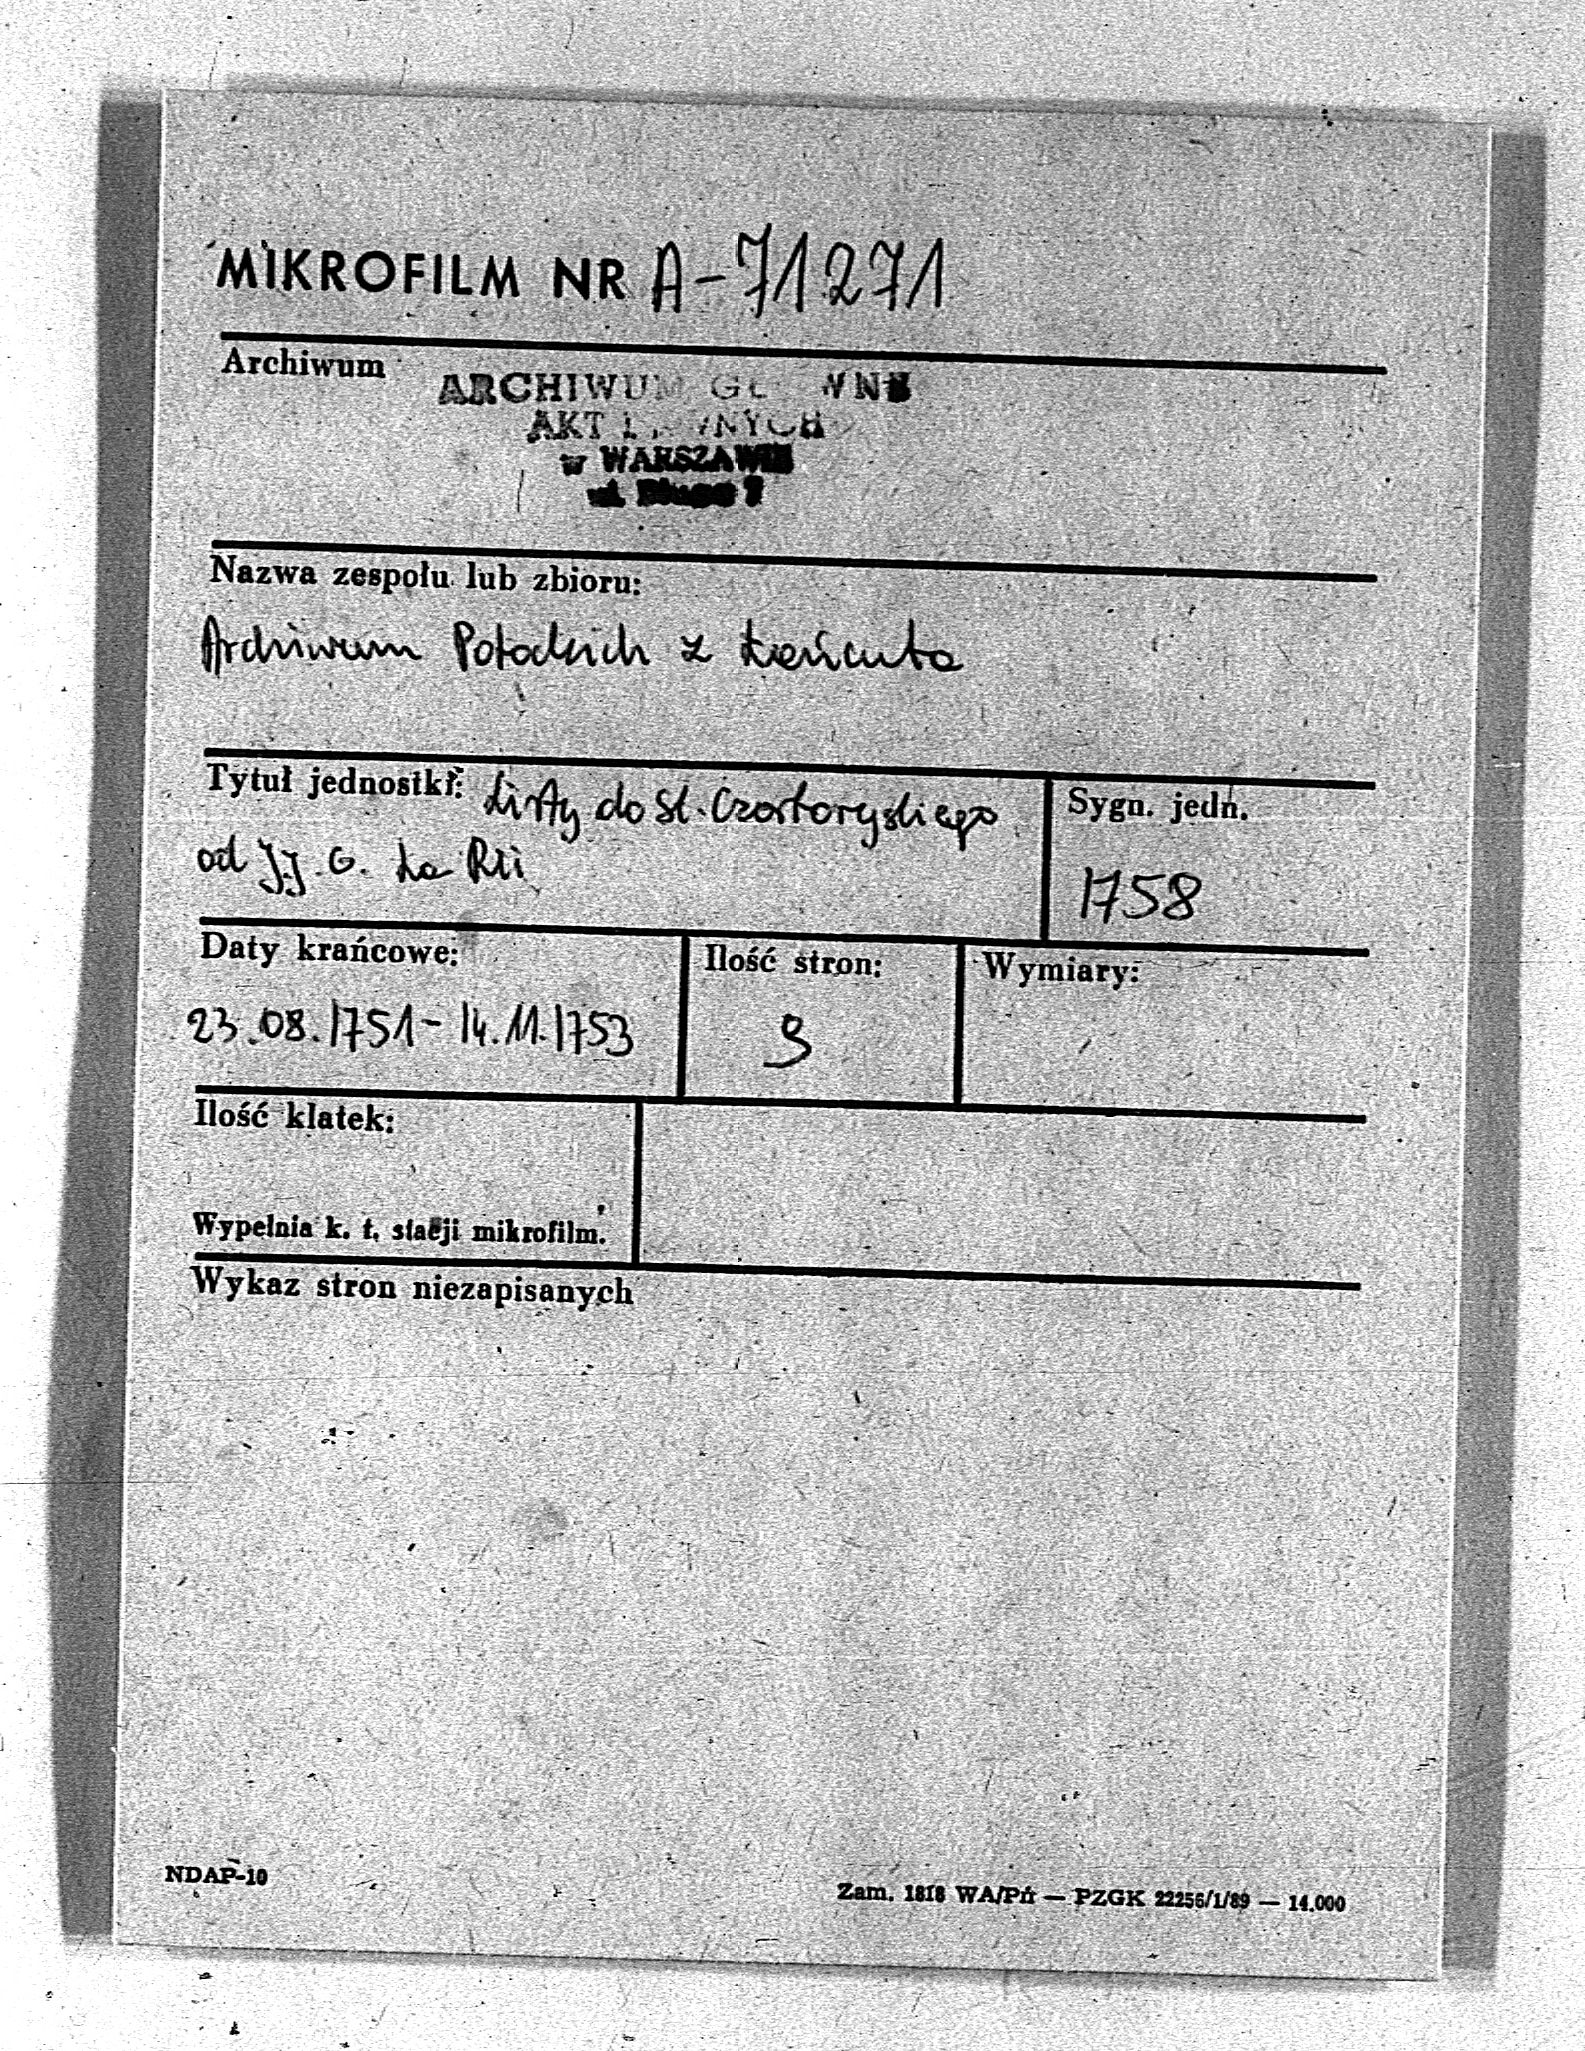 MIKROFILM NR A-71271
Archiwum
ARCHIWUM GŁÓWNE
AKT DAWNYCH
w WARSZAWIE
ul. Długa 7
Nazwa zespołu lub zbioru:
Archiwum Potockich z Łańcuta
Tytuł jednostki: Listy do St. Czartoryskiego
od J.J. G. La
Sygn. jedn.
1758
Daty krańcowe:
23.08.1751-14.11.1753
Ilość stron:
9
Wymiary:
Ilość klatek:
Wypełnia k. t. stacji mikrofilm.
Wykaz stron niezapisanych
NDAP-10
Zam. 1818 WA/Pń — PZGK 22256/1/89 — 14.000